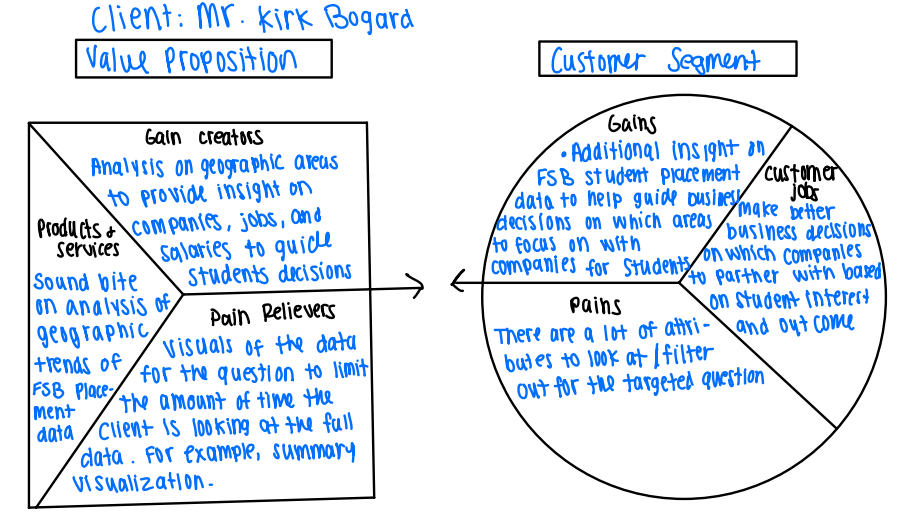 Client: Mr. Kirk Bogard
Value Proposition
Gain creators
Analysis on geographic areas
to provide insight on
companies, jobs, and
salaries to guide
students decisions
Products &
services
Sound bite
on analysis of
geographic
trends of
FSB Place-
ment
data
Pain Relievers
Visuals of the data
for the question to limit
the amount of time the
client is looking at the full
data. For example, summary
visualization.
Customer Segment
Gains
• Additional insight on
FSB student placement
data to help guide business
decisions on which areas
to focus on with
companies for students
Customer
jobs
Make better
business decisions
on which companies
to partner with based
on student interest
and out come
Pains
There are a lot of attri-
butes to look at / filter
out for the targeted question